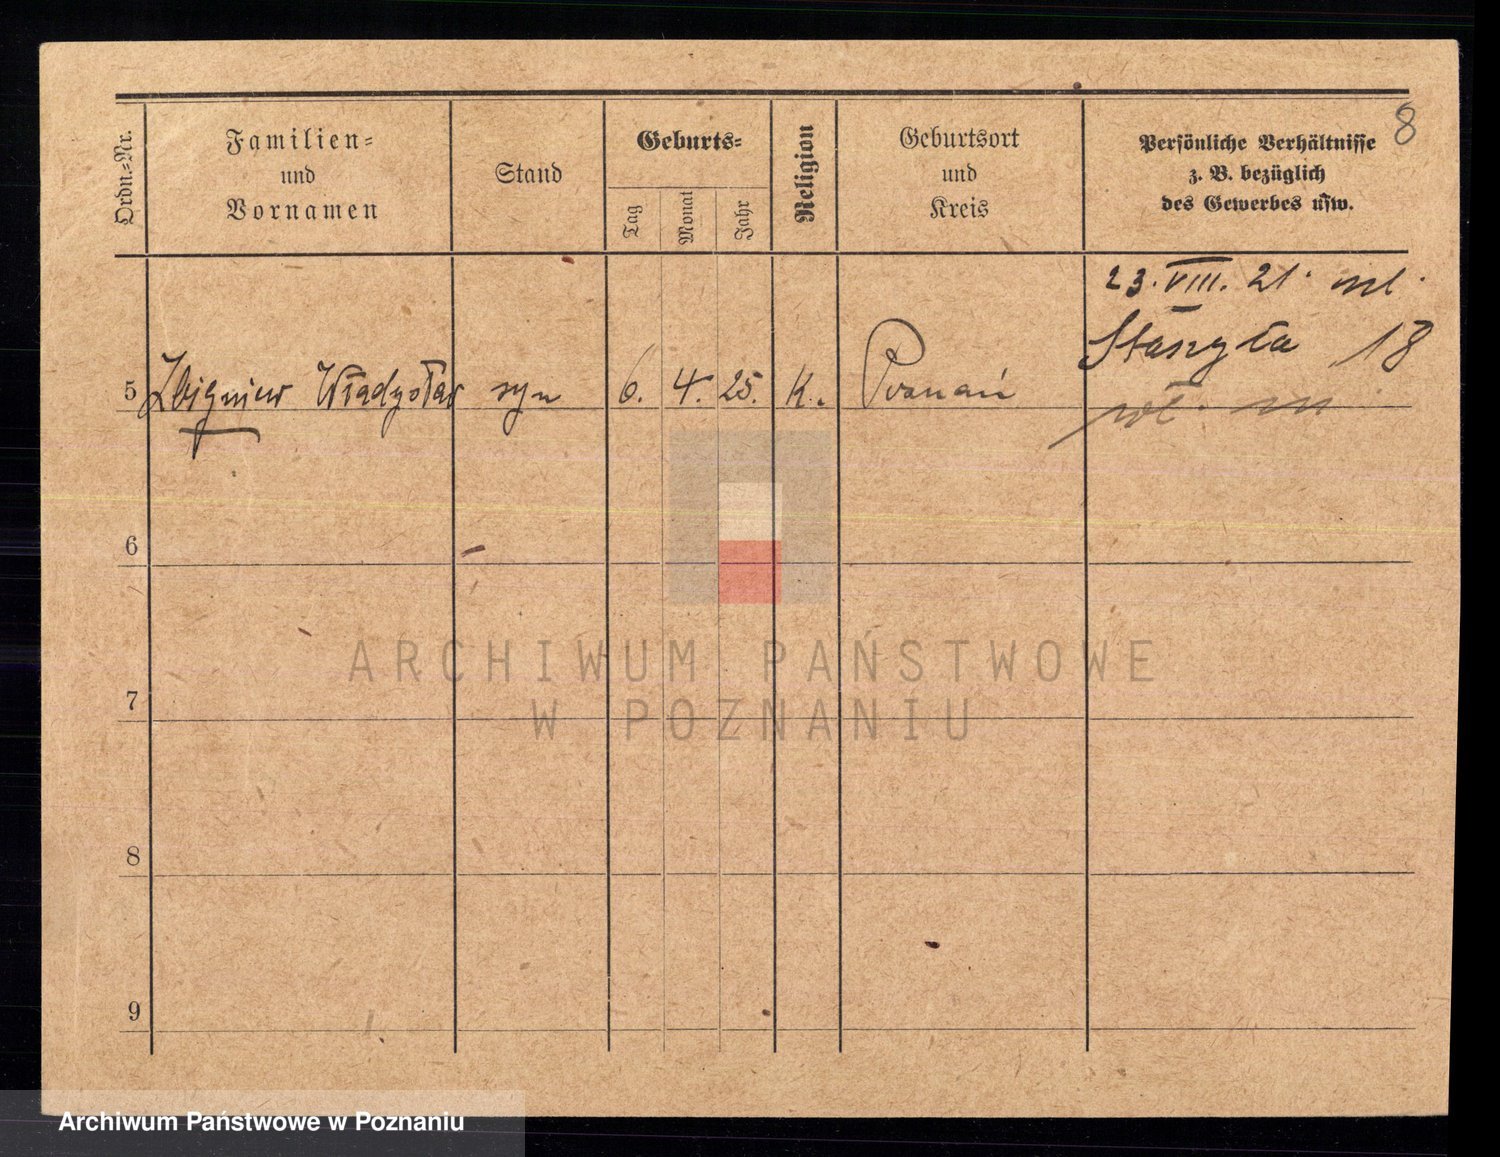 8
Ordn.-Nr.
Familien-
und
Vornamen
Stand
Geburts-
Tag
Monat
Jahr
Religion
Geburtsort
und
Kreis
Persönliche Verhältnisse
z. B. bezüglich
des Gewerbes usw.
23. VIII. 21.
18
5 Zbigniew Władysław syn 6. 4. 25. K. Poznań
6
7
8
9
ARCHIWUM PAŃSTWOWE
W POZNANIU
Archiwum Państwowe w Poznaniu